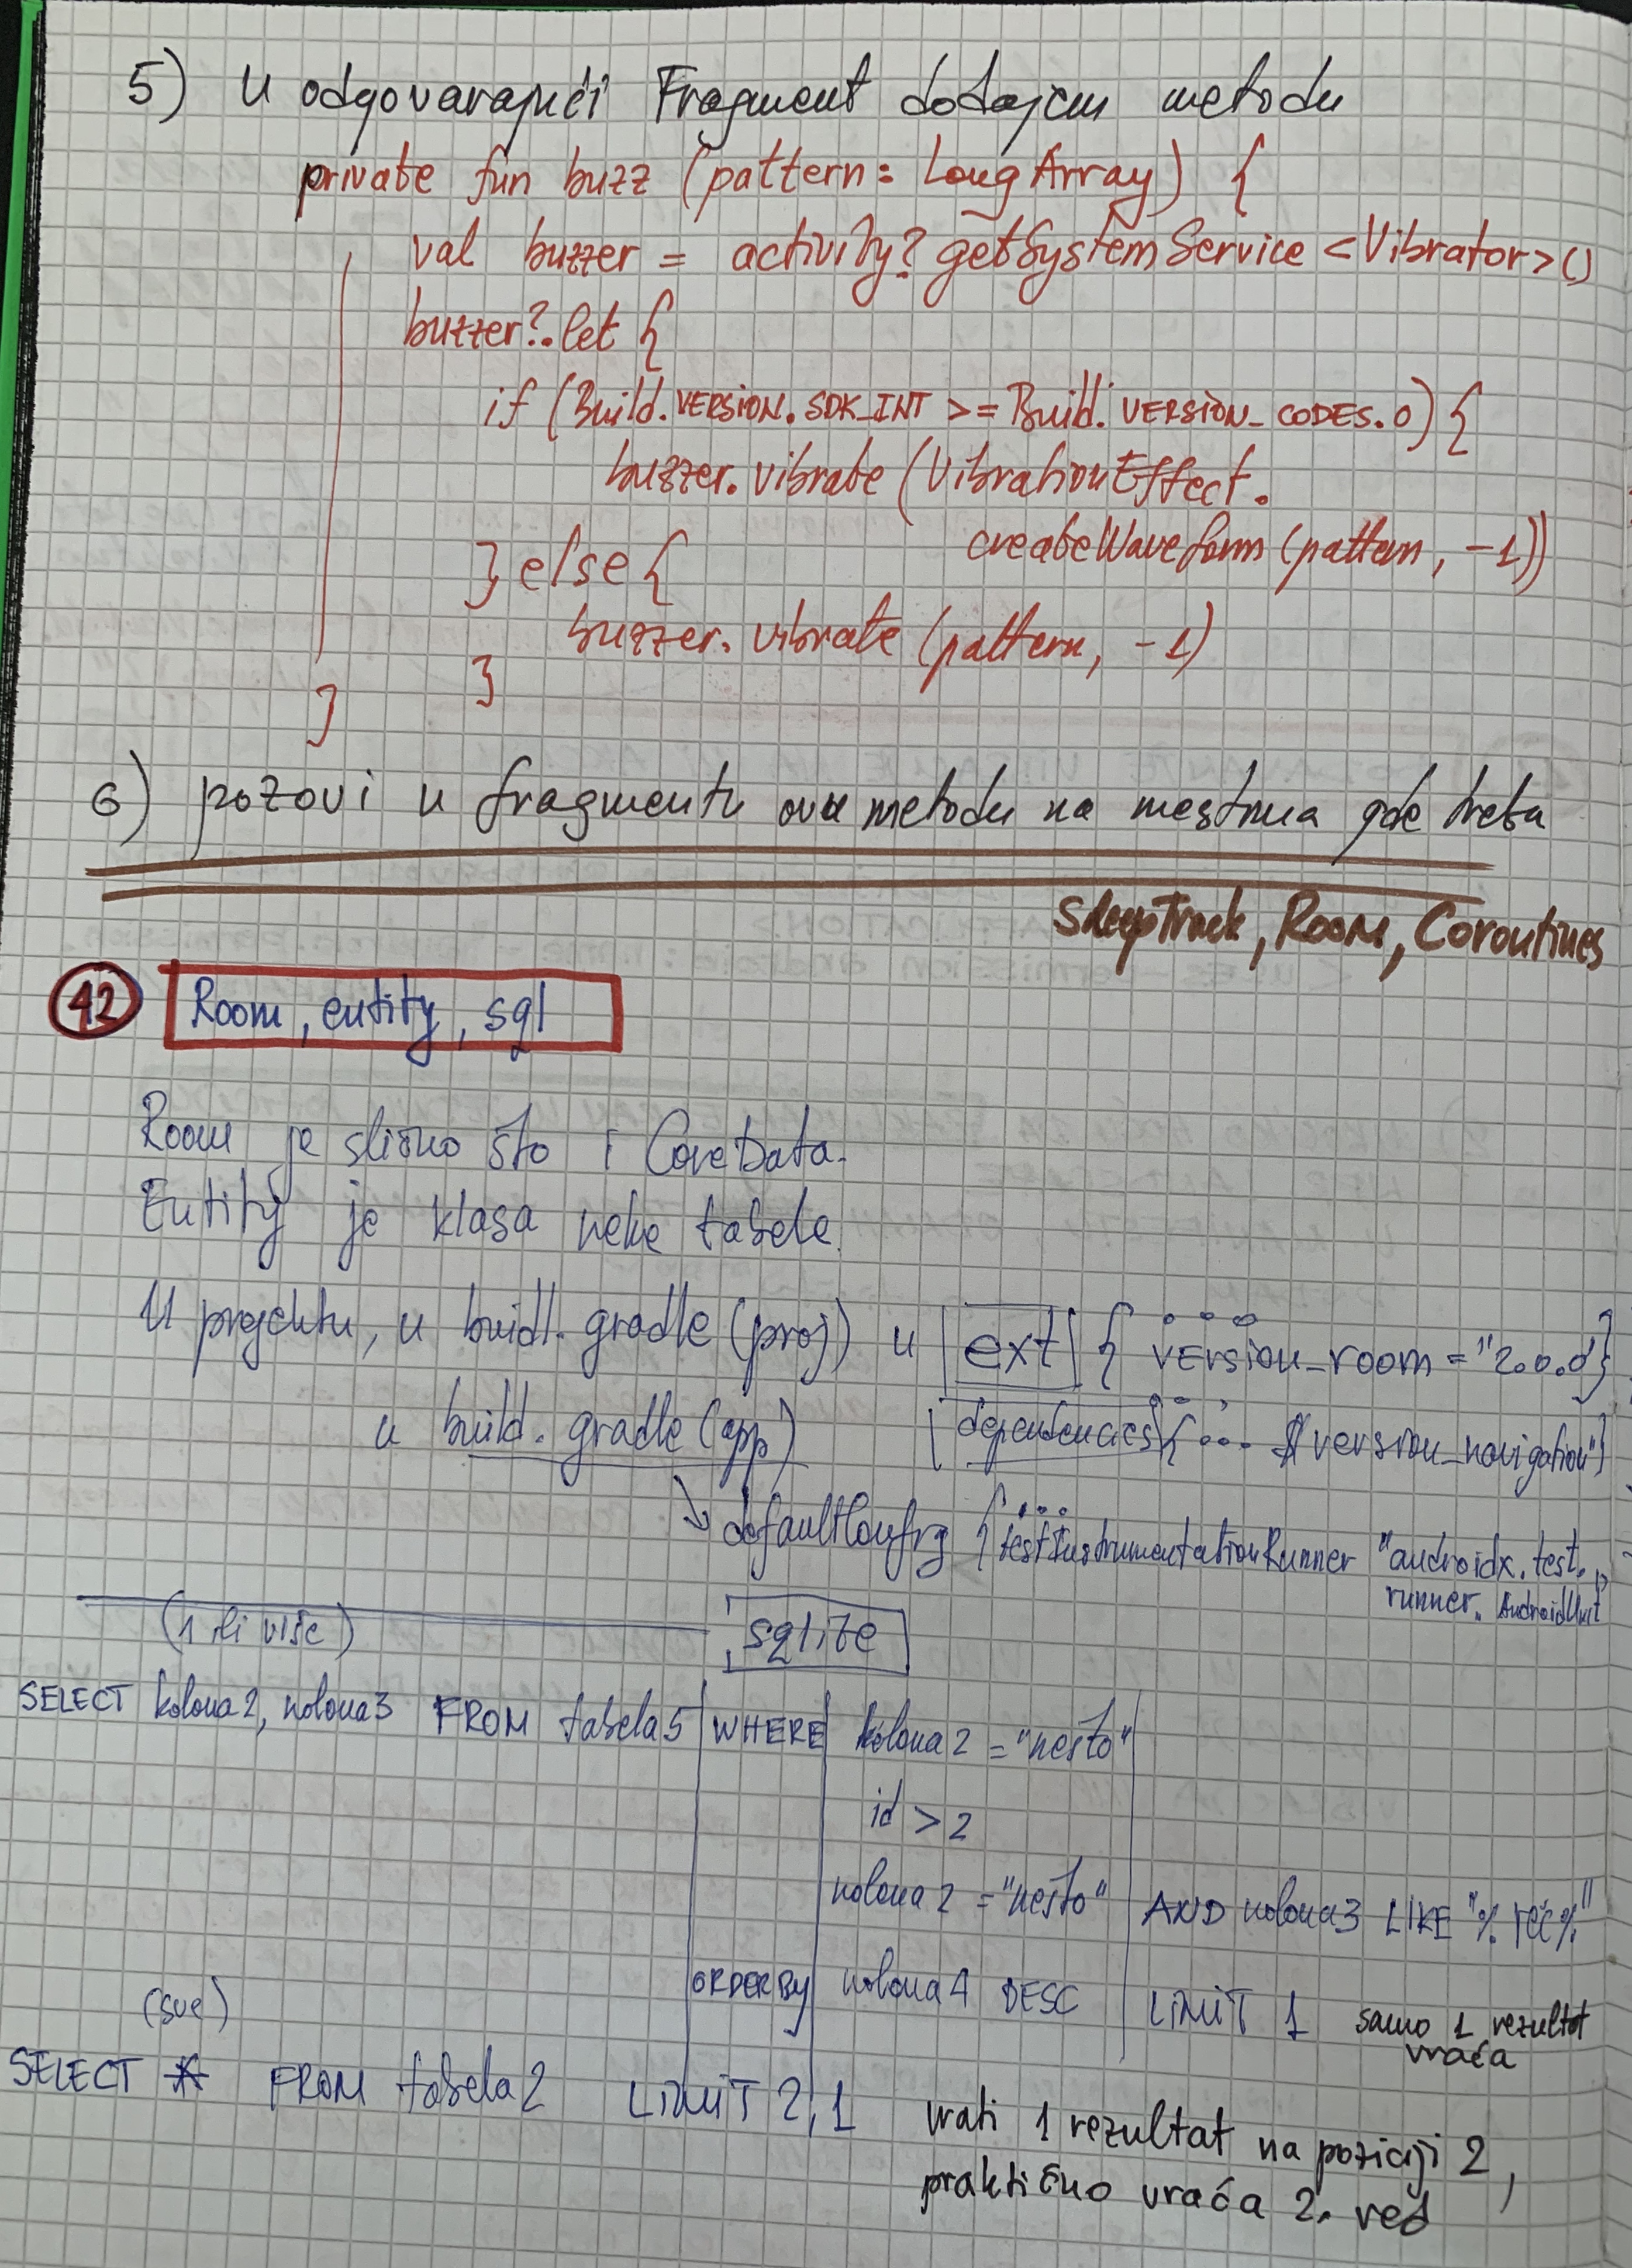 5) U odgovarajući Fragment dodajem metodu
private fun buzz (pattern: LongArray) {
val buzzer = activity?.getSystemService<Vibrator>()
buzzer?.let {
if (Build.VERSION.SDK_INT >= Build.VERSION_CODES.O) {
buzzer.vibrate (VibrationEffect.
createWaveform (pattern, -1))
} else {
buzzer.vibrate (pattern, -1)
}
}
6) pozovi u fragmentu ovu metodu na mestima gde treba
SleepTrack, Room, Coroutines
42 Room, entity, sql
Room je slično što i CoreData.
Entity je klasa neke tabele.
U projektu, u buidl.gradle (proj) u ext { ... version_room = "2.0.0" }
u build.gradle (app) dependencies { ... $version_navigation" }
↘ defaultConfig { ... testInstrumentationRunner "androidx.test.
runner.
(1 ili više) sqlite
SELECT kolona2, kolona3 FROM tabela5 WHERE kolona2 = "nešto"
id > 2
kolona2 = "nešto" AND kolona3 LIKE "%reč%"
ORDER BY kolona4 DESC LIMIT 1 samo 1 rezultat
vraća
(sve)
SELECT * FROM tabela2 LIMIT 2,1 vrati 1 rezultat na poziciji 2,
praktično vraća 2. red